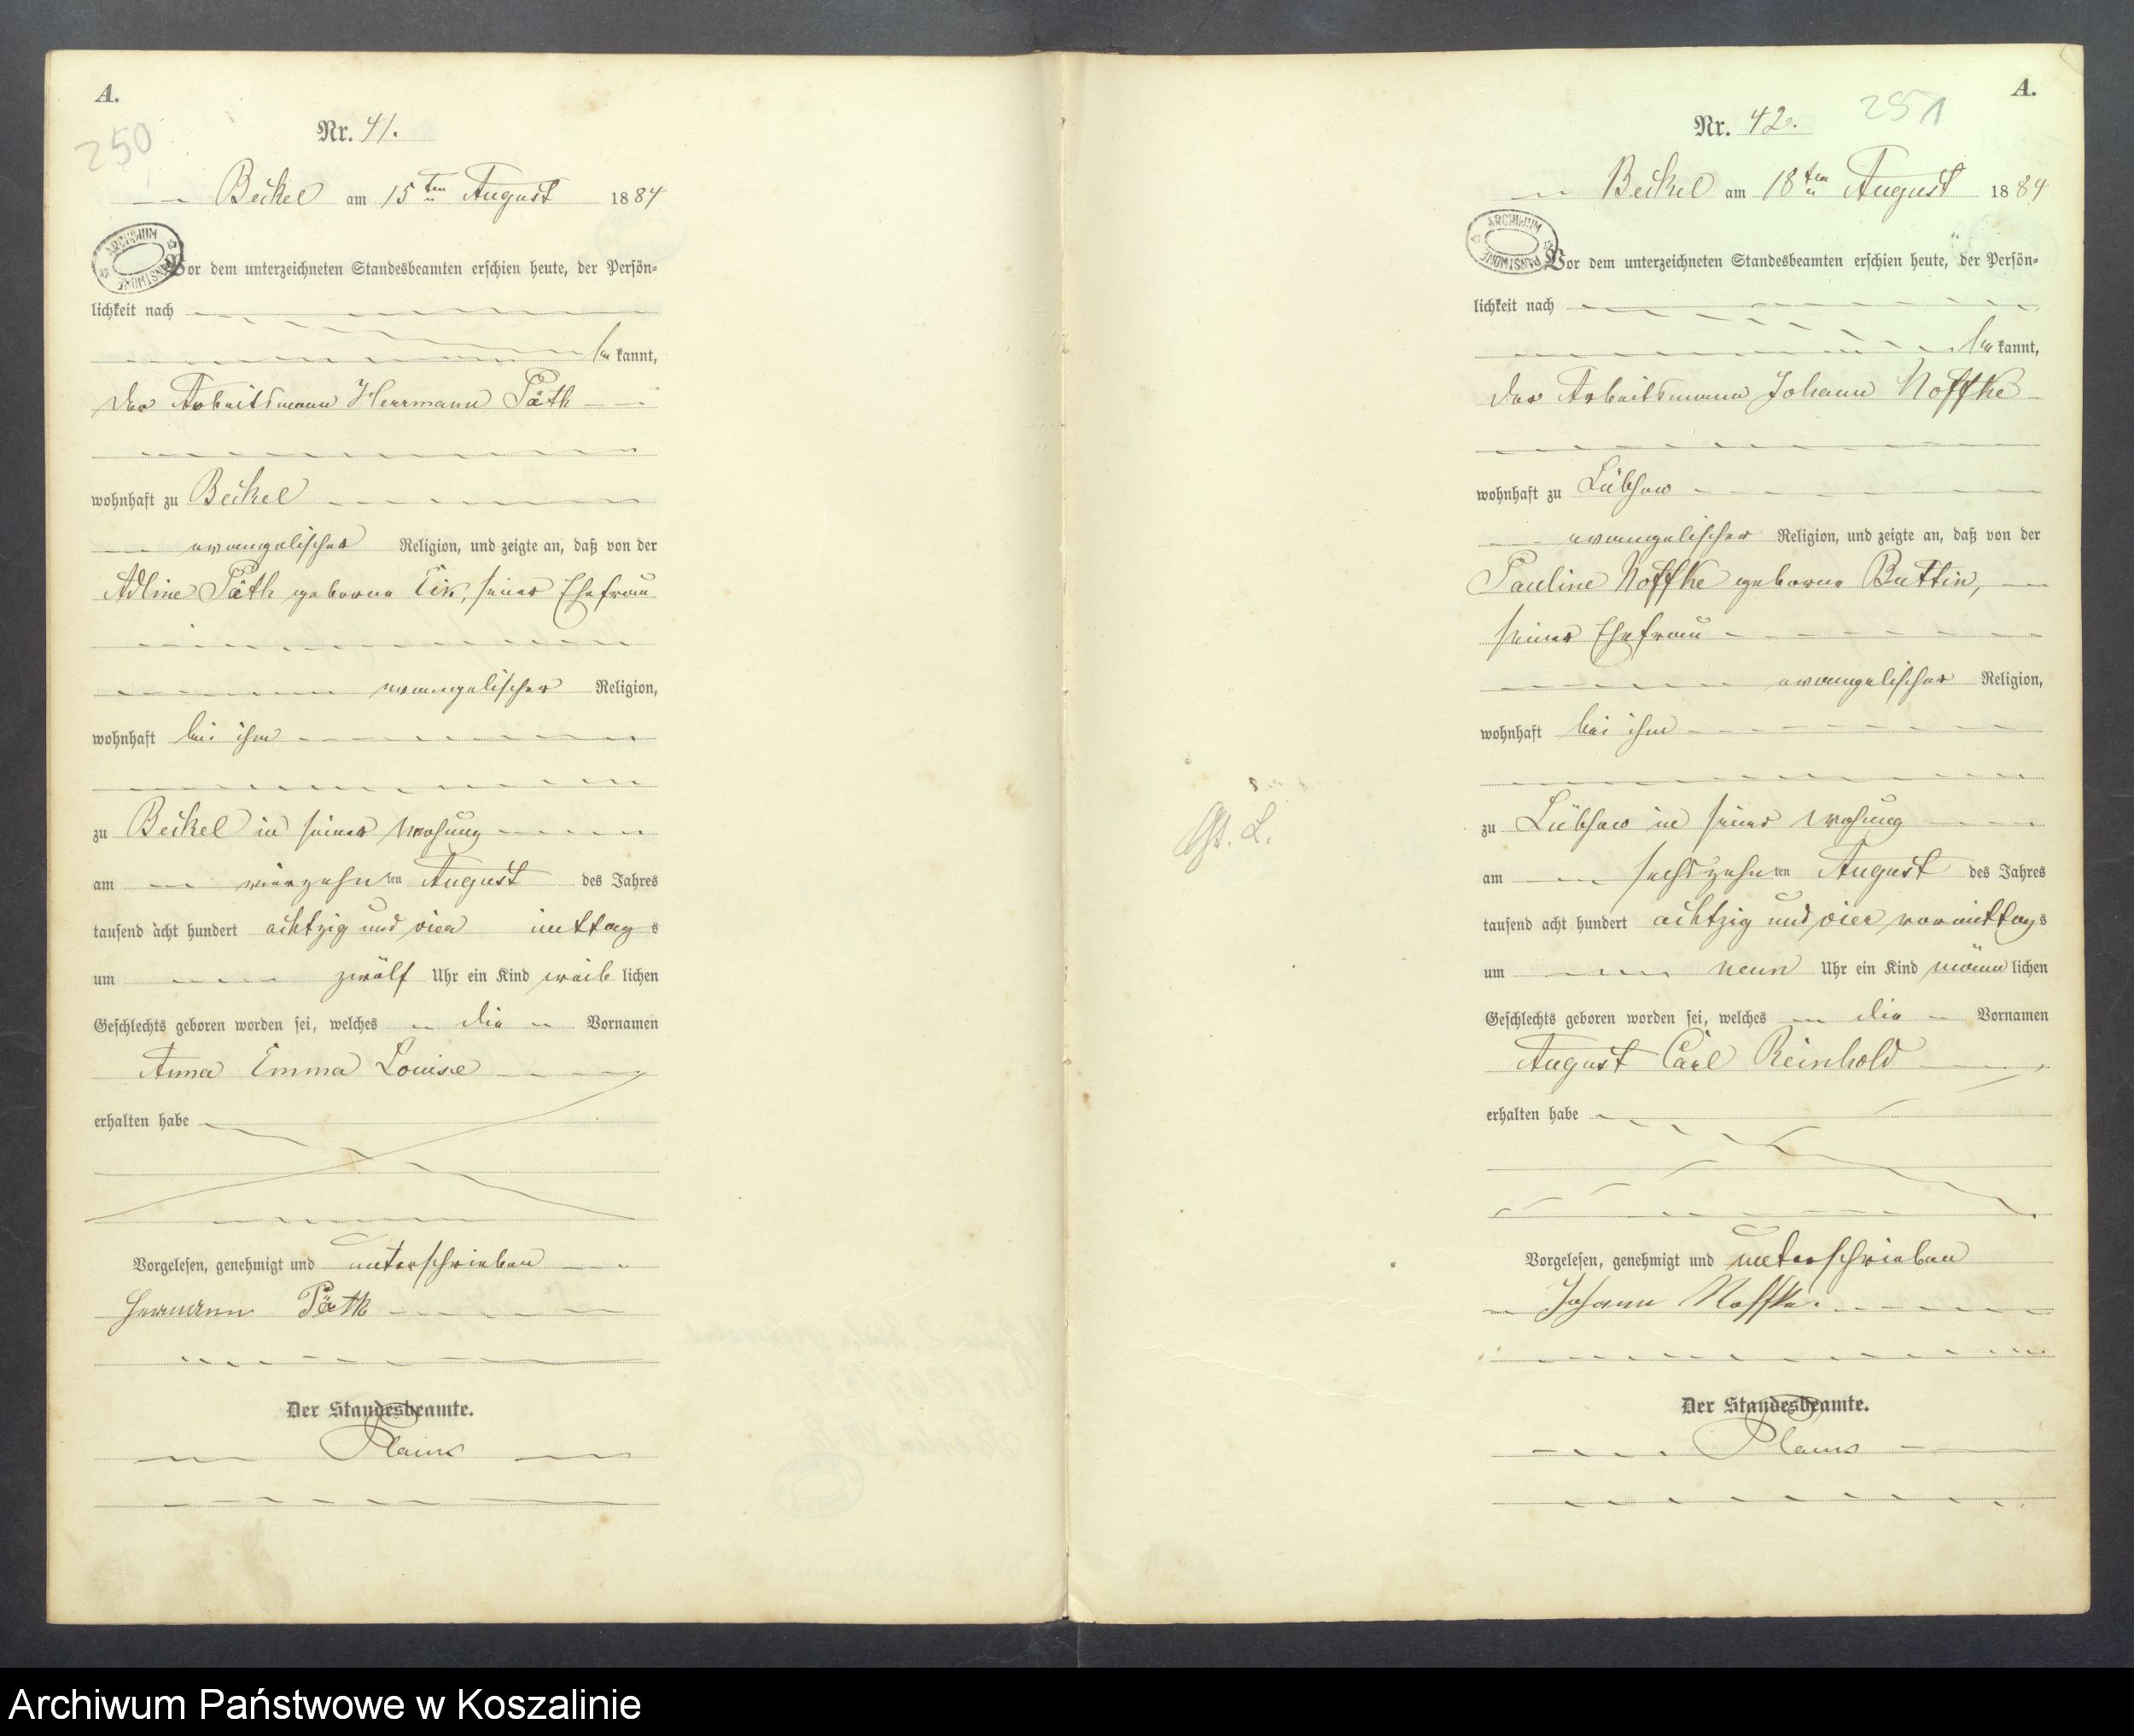 A.
250
Nr. 41.
Beckel am 15ten August 1884
ARCHIWUM PAŃSTWOWE
Vor dem unterzeichneten Standesbeamten erschien heute, der Persön-
lichkeit nach
be kannt,
der Arbeitsmann Herrmann Päth
wohnhaft zu Beckel
evangelischer Religion, und zeigte an, daß von der
Adline Päth geborne Eik, seiner Ehefrau
evangelischer Religion,
wohnhaft bei ihm
zu Beckel in seiner Wohung
am vierzehn ten August des Jahres
tausend acht hundert achtzig und vier mittag s
um zwölf Uhr ein Kind weib lichen
Geschlechts geboren worden sei, welches die Vornamen
Anna Emma Louise
erhalten habe
Vorgelesen, genehmigt und unterschrieben
Hermann Päth
Der Standesbeamte.
A.
251
Nr. 42.
Beckel am 18ten August 1884
ARCHIWUM PAŃSTWOWE
Vor dem unterzeichneten Standesbeamten erschien heute, der Persön-
lichkeit nach
be kannt,
der Arbeitsmann Johann Noffke
wohnhaft zu Lübzow
evangelischer Religion, und zeigte an, daß von der
Pauline Noffke geborne Buttin,
seiner Ehefrau
evangelischer Religion,
wohnhaft bei ihm
zu Lübzow in seiner Wohung
am sechszehn ten August des Jahres
tausend acht hundert achtzig und vier vormittag s
um neun Uhr ein Kind männ lichen
Geschlechts geboren worden sei, welches die Vornamen
August Carl Reinhold
erhalten habe
Vorgelesen, genehmigt und unterschrieben
Johann Noffke.
Der Standesbeamte.
Archiwum Państwowe w Koszalinie